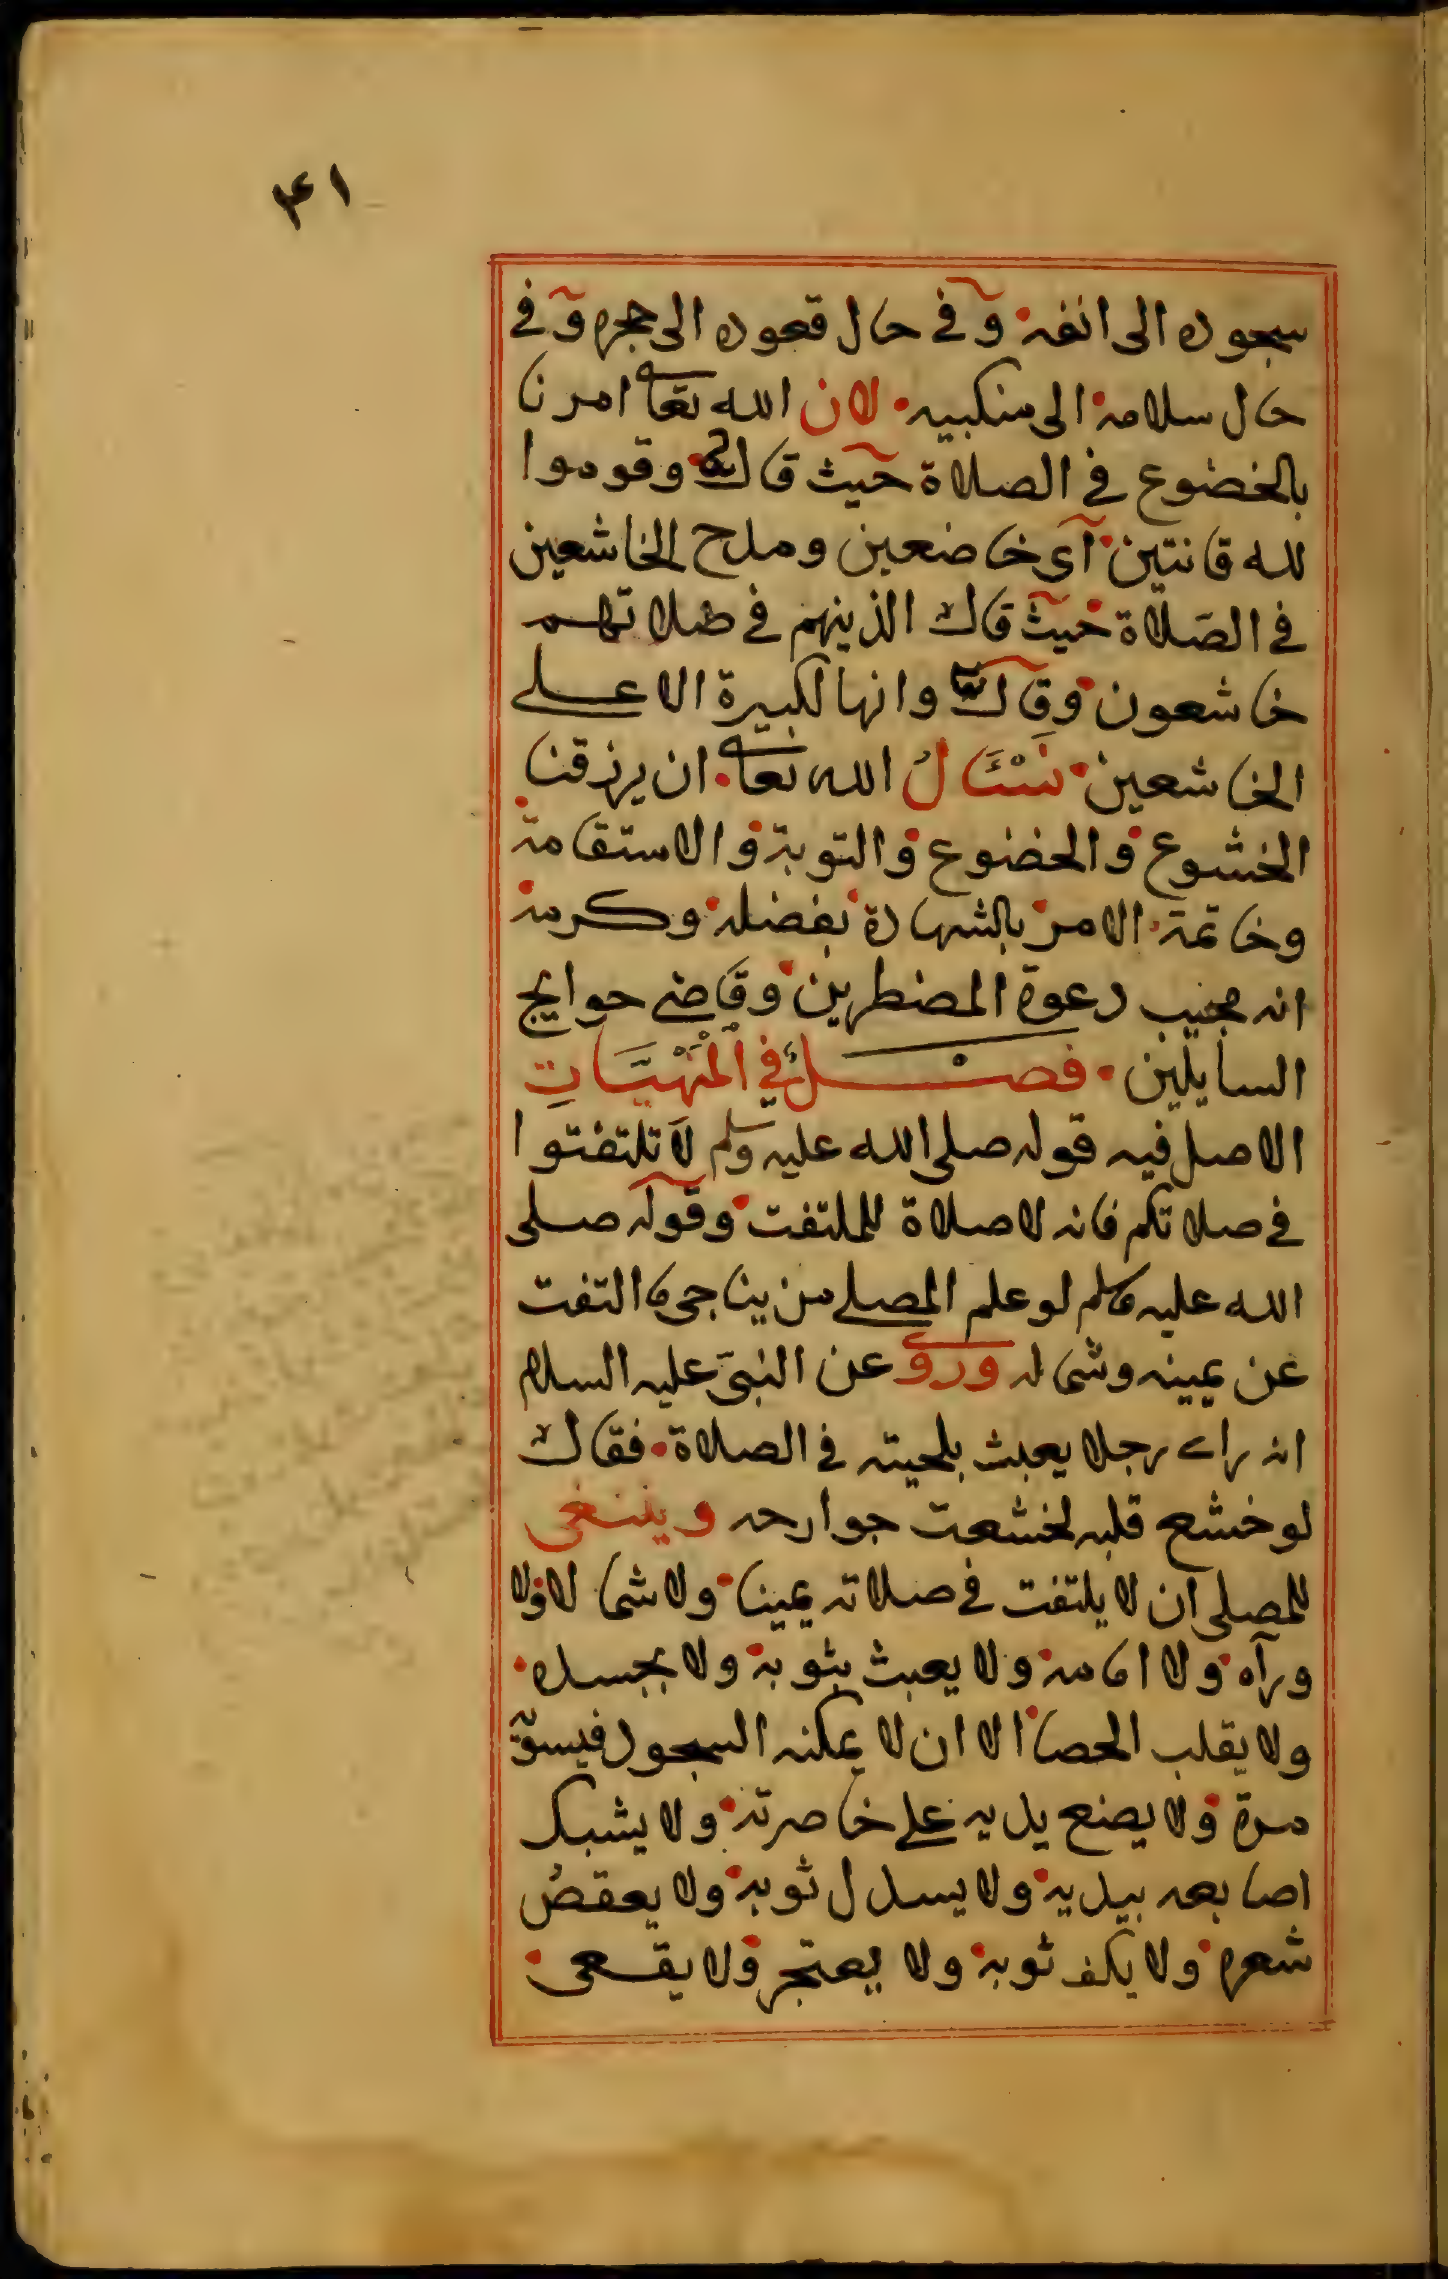 ٤١
سجوده الى انفه وفي حال قعوده الى حجره وفي
حال سلامه الى منكبيه لان الله تعالى امرنا
بالخضوع في الصلاة حيث قال وقوموا
لله قانتين اى خاضعين ومدح الخاشعين
في الصلاة حيث قال الذينهم في صلاتهم
خاشعون وقال وانها لكبيرة الا على
الخاشعين نَسْئَلُ الله تعالى ان يرزقنا
الخشوع والخضوع والتوبة والاستقامة
وخاتمة الامر بالشهادة بفضله وكرمه
انه مجيب دعوة المضطرين وقاضى حوايج
السايلين فصل في المَنْهِيَّاتِ
الاصل فيه قوله صلى الله عليه وسلم لا تلتفتوا
في صلاتكم فانه لا صلاة للملتفت وقوله صلى
الله عليه وسلم لو علم المصلى من يناجى ما التفت
عن يمينه وشماله وروى عن النبيّ عليه السلام
انه راى رجلا يعبث بلحيته في الصلاة فقال
لو خشع قلبه لخشعت جوارحه وينبغى
للمصلى ان لا يلتفت في صلاته يمينا ولا شمالا ولا
ورآه ولا امامه ولا يعبث بثوبه ولا بجسده
ولا يقلب الحصا الا ان لا يمكنه السجود فيسوّيه
مرة ولا يضع يديه على خاصرته ولا يشبك
اصابعه بيديه ولا يسدل ثوبه ولا يعقصُ
شعره ولا يكف ثوبه ولا يعتجر ولا يقعى